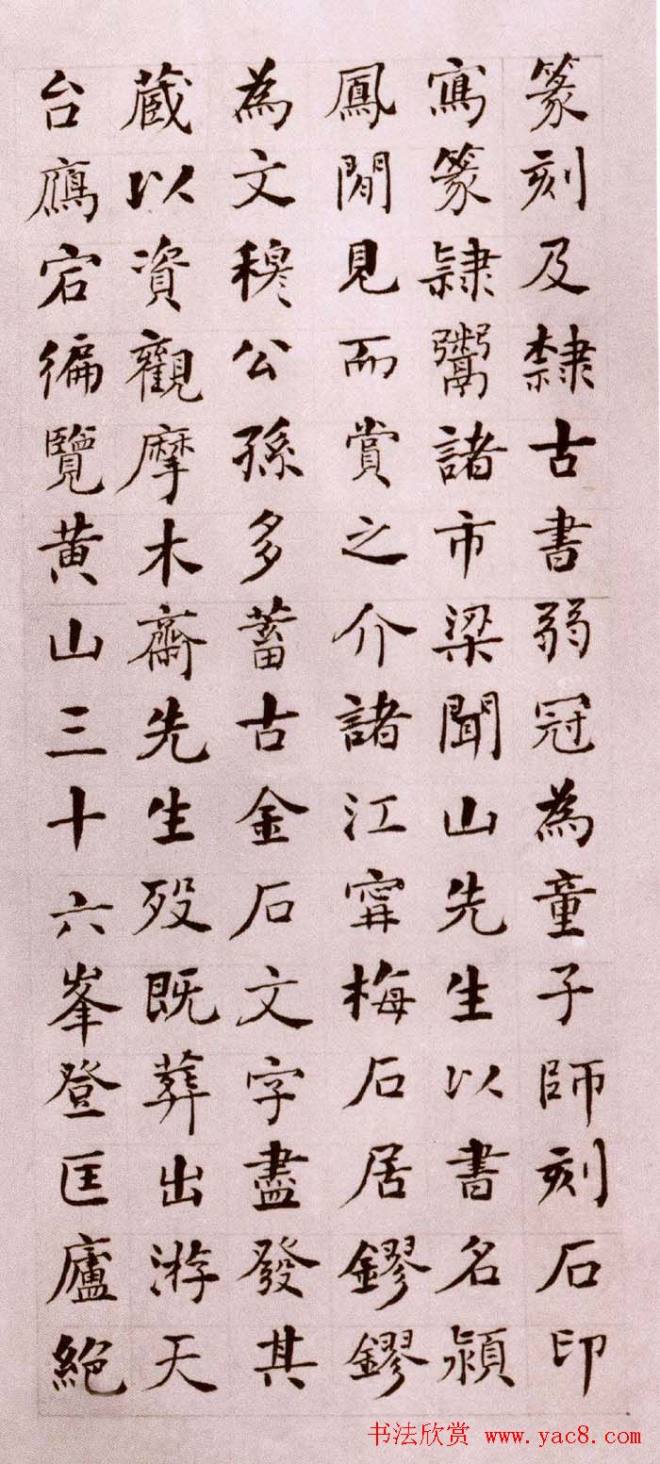 篆刻及隸古書弱冠為童子師刻石印
寫篆隸鬻諸市梁聞山先生以書名潁
鳳閒見而賞之介諸江寗梅石居鏐鏐
為文穆公孫多蓄古金石文字盡發其
蔵以資觀摩木齋先生歿既葬出游天
台鴈宕徧覽黄山三十六峯登匡廬絕
书法欣赏 www.yac8.com